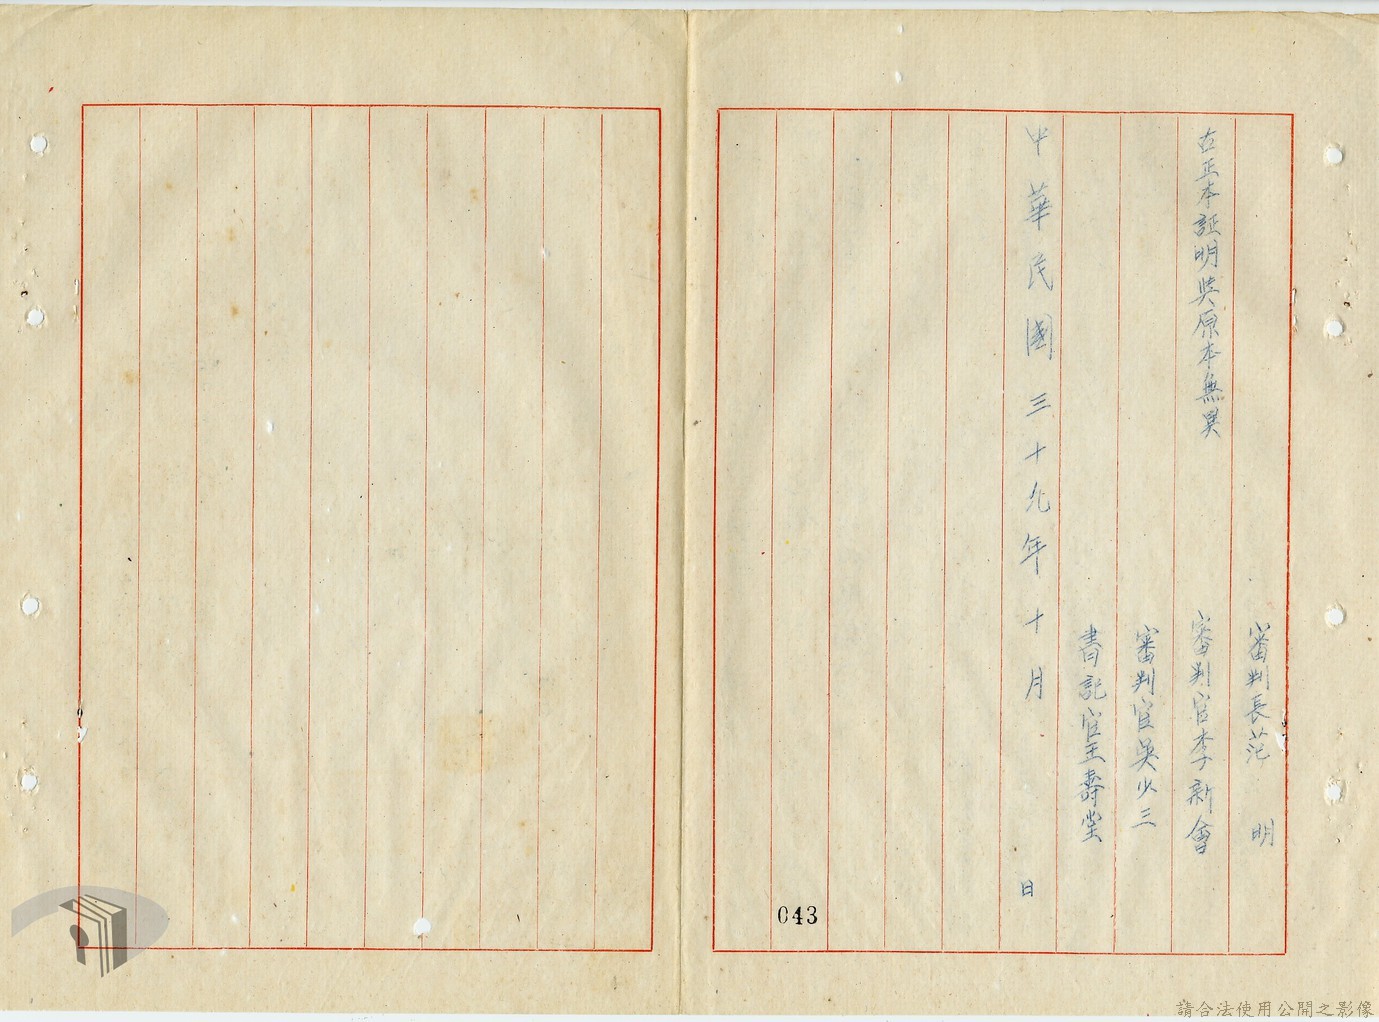 審判長范　明
右正本証明與原本無異　審判官李新會
審判官吳少三
書記官王壽堂
中華民國三十九年十月　日
043
請合法使用公開之影像